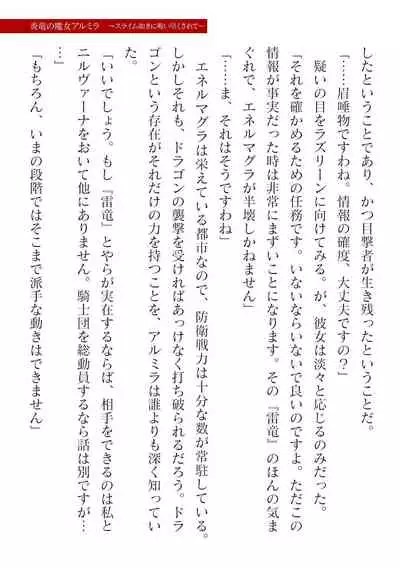 炎竜の魔女アルミラ　～スライム如きに吸い尽くされて～
したということであり、かつ目撃者が生き残ったということだ。
「……眉唾物ですわね。情報の確度、大丈夫ですの？」
疑いの目をラズリーンに向けてみる。が、彼女は淡々と応じるのみだった。
「それを確かめるための任務です。いないならいないで良いのですよ。ただこの
情報が事実だった時は非常にまずいことになります。その『雷竜』のほんの気ま
ぐれで、エネルマグラが半壊しかねません」
「……ま、それはそうですわね」
エネルマグラは栄えている都市なので、防衛戦力は十分な数が常駐している。
しかしそれも、ドラゴンの襲撃を受ければあっけなく打ち破られるだろう。ドラ
ゴンという存在がそれだけの力を持つことを、アルミラは誰よりも深く知ってい
た。
「いいでしょう。もし『雷竜』とやらが実在するならば、相手をできるのは私と
ニルヴァーナをおいて他にありません。騎士団を総動員するなら話は別ですが…
「もちろん、いまの段階ではそこまで派手な動きはできません」